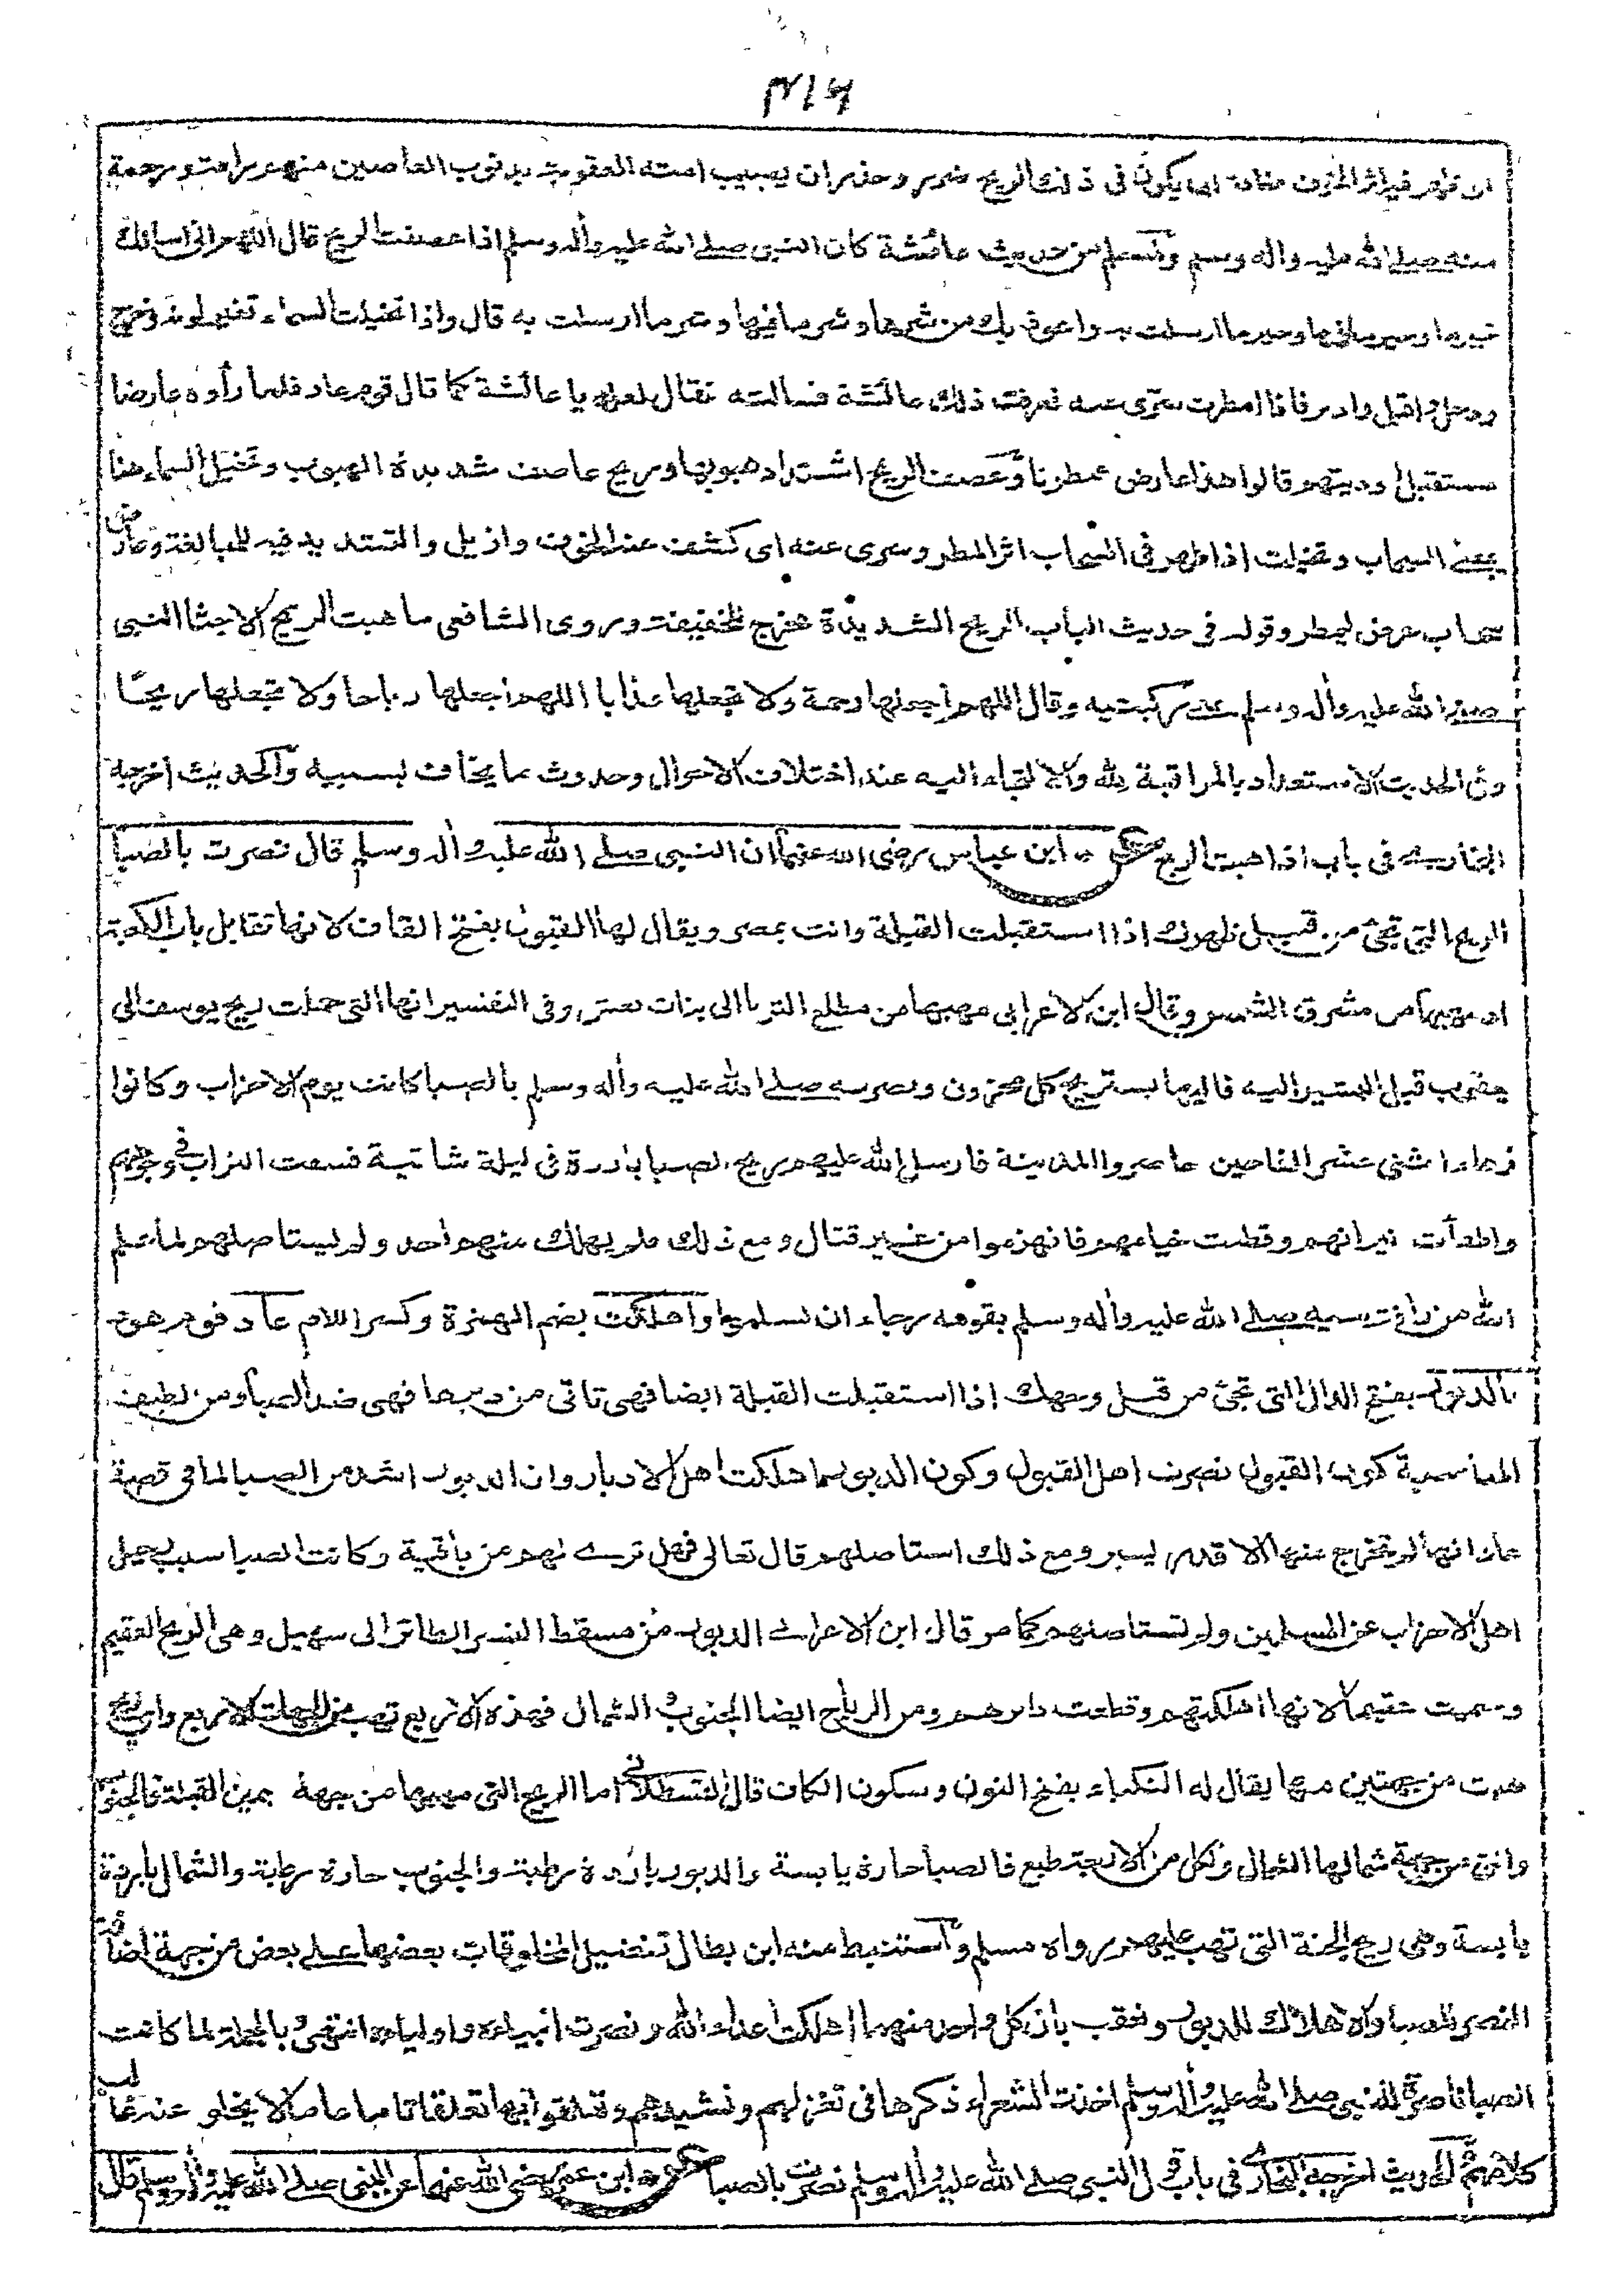 ٣١٦
فيه اثر الخوف مخافة ان يكون فى ذلك الريح ضرر وحذر ان يصيب امته العقوبة بذنوب العاصين منهم رافة ورحمة
منه صلى الله عليه واله وسلم ولمسلم من حديث عائشة كان النبى صلى الله عليه واله وسلم اذا عصفت الريح قال اللهم انى اسالك
خيرها وخير ما فيها وخير ما ارسلت به واعوذ بك من شرها وشر ما فيها وشر ما ارسلت به قال واذا تخيلت السماء تغير لونه وخرج
ودخل واقبل وادبر فاذا امطرت سرى عنه فعرفت ذلك عائشة فسالته فقال لعله يا عائشة كما قال قوم عاد فلما رأوه عارضا
مستقبل اوديتهم قالوا هذا عارض ممطرنا وعصف الريح اشتداد هبوبها وريح عاصف شديدة الهبوب وتخيل السماء هنا
بمعنى السحاب وتخيلت اذا ظهر فى السحاب اثر المطر وسرى عنه اى كشف عنه الخوف وازيل والتشديد فيه للمبالغة وعارض
سحاب عرض ليمطر وقوله فى حديث الباب الريح الشديدة مخرج للخفيفة وروى الشافعى ما هبت الريح الا جثا النبى
صلى الله عليه واله وسلم على ركبتيه وقال اللهم اجعلها رحمة ولا تجعلها عذابا اللهم اجعلها رياحا ولا تجعلها ريحا
وفى الحديث الاستعداد بالمراقبة لله والالتجاء اليه عند اختلاف الاحوال وحدوث ما يخاف بسببه والحديث اخرجه
البخارى فى باب اذا هبت الريح عن ابن عباس رضى الله عنهما ان النبى صلى الله عليه واله وسلم قال نصرت بالصبا
الريح التى تجئ من قبل ظهرك اذا استقبلت القبلة وانت بمصر ويقال لها القبول بفتح القاف لانها تقابل باب الكعبة
اذ مهبها من مشرق الشمس وقال ابن الاعرابى مهبها من مطلع الثريا الى بنات نعش وفى التفسير انها التى حملت ريح يوسف الى
يعقوب قبل البشير اليه فاليها يستريح كل محزون ونصرته صلى الله عليه واله وسلم بالصبا كانت يوم الاحزاب وكانوا
زهاء اثنى عشر الفا حين حاصروا المدينة فارسل الله عليهم ريح الصبا باردة فى ليلة شاتية فسفت التراب فى وجوههم
واطفأت نيرانهم وقطعت خيامهم فانهزموا من غير قتال ومع ذلك فلم يهلك منهم احد ولم يستاصلهم لما علم
الله من رافة نبيه صلى الله عليه واله وسلم بقومه رجاء ان يسلموا واهلكت بضم الهمزة وكسر اللام عاد قوم هود
بالدبور بفتح الدال التى تجئ من قبل وجهك اذا استقبلت القبلة ايضا فهى تاتى من دبرها فهى ضد الصبا ومن لطيف
المناسبة كون القبول نصرت اهل القبول وكون الدبور اهلكت اهل الادبار وان الدبور اشد من الصبا لما فى قصة
عاد انها لم يخرج منها الا قدر يسير ومع ذلك استاصلهم قال تعالى فهل ترى لهم من باقية وكانت الصبا سبب رحيل
اهل الاحزاب عن المسلمين ولم تستاصلهم كما مر قال ابن الاعرابى الدبور من مسقط النسر الطائر الى سهيل وهى الريح العقيم
وسميت عقيما لانها اهلكتهم وقطعت دابرهم ومن الرياح ايضا الجنوب والشمال فهذه الاربع تهب من الجهات الاربع واى ريح
هبت من جهتين منها يقال له النكباء بفتح النون وسكون الكاف قال القسطلانى اما الريح التى مهبها من جهة يمين القبلة فالجنوب
والتى من جهة شمالها الشمال ولكل من الاربعة طبع فالصبا حارة يابسة والدبور باردة رطبة والجنوب حارة رطبة والشمال باردة
يابسة وهى ريح الجنة التى تهب عليهم رواه مسلم واستنبط منه ابن بطال تفضيل المخلوقات بعضها على بعض من جهة اضافة
النصر للصبا والاهلاك للدبور وتعقب بان كل واحد منهما اهلكت اعداء الله ونصرت انبياءه واولياءه انتهى وبالجملة لما كانت
الصبا ناصرة للنبى صلى الله عليه واله وسلم اخذت الشعراء ذكرها فى تغزلهم ونشيدهم وتعلقوا بها تعلقا تاما عاما لا يخلو عنه غالب
كلامهم والحديث اخرجه البخارى فى باب قول النبى صلى الله عليه واله وسلم نصرت بالصبا عن ابن عمر رضى الله عنهما عن النبى صلى الله عليه واله وسلم قال